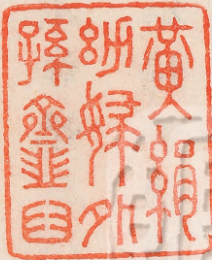 黃絹
幼婦外
孫齏臼